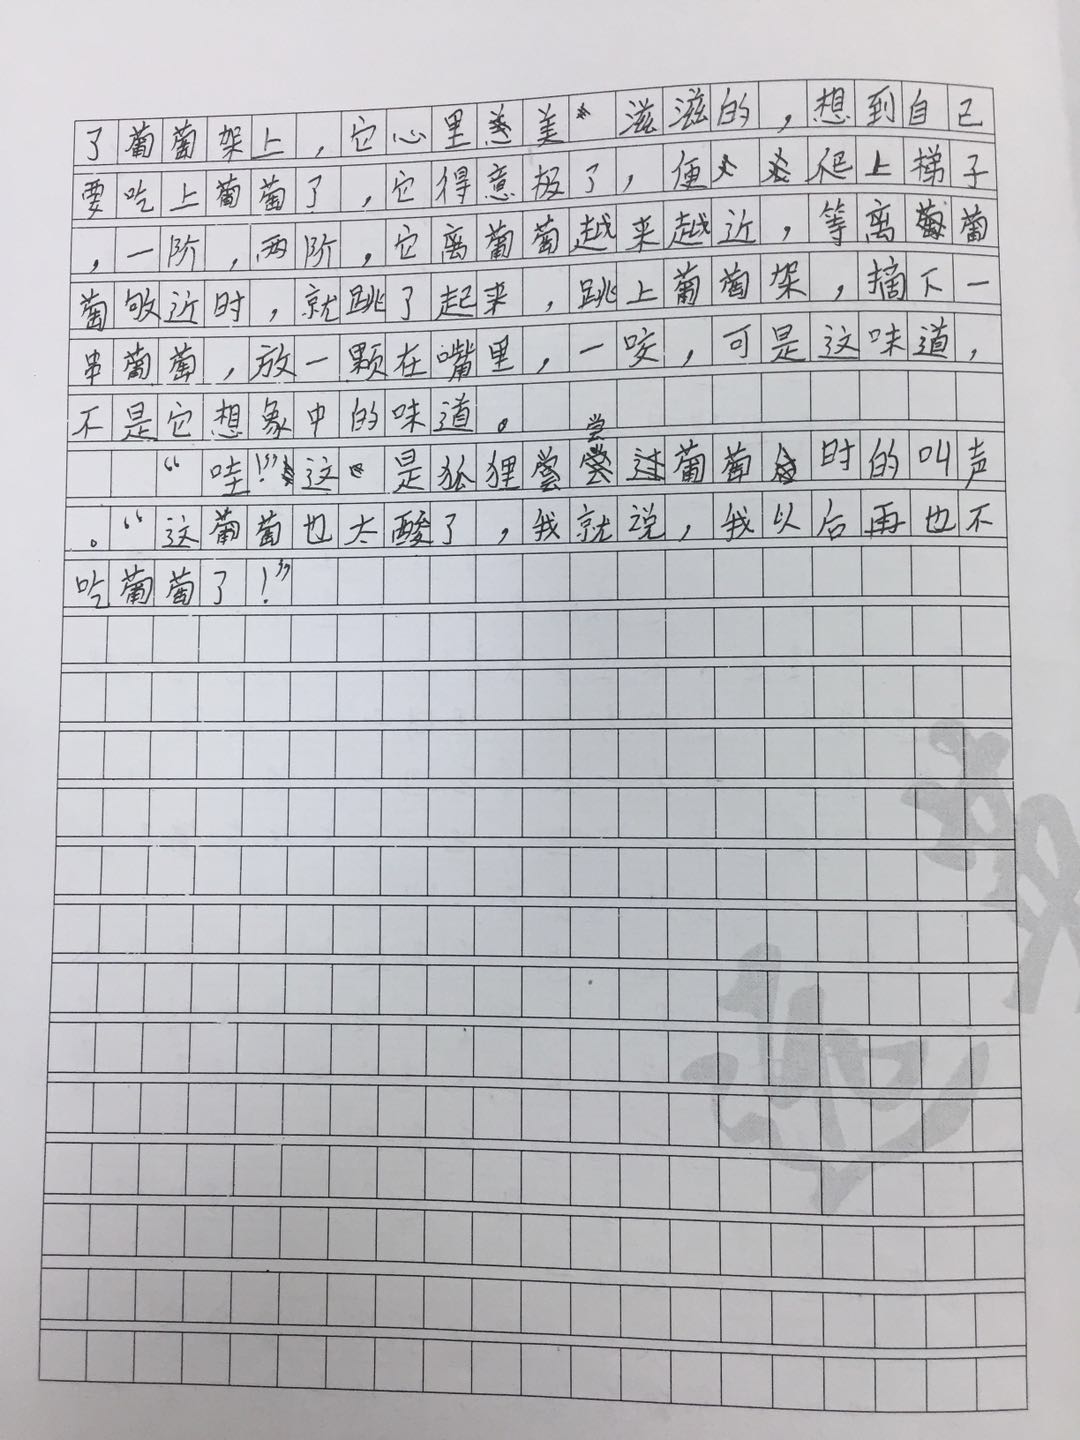 了葡萄架上，它心里美滋滋的，想到自己
要吃上葡萄了，它得意极了，便爬上梯子
，一阶，两阶，它离葡萄越来越近，等离葡
萄够近时，就跳了起来，跳上葡萄架，摘下一
串葡萄，放一颗在嘴里，一咬，可是这味道，
不是它想象中的味道。
“哇！”这是狐狸尝尝过葡萄时的叫声
。“这葡萄也太酸了，我就说，我以后再也不
吃葡萄了！”